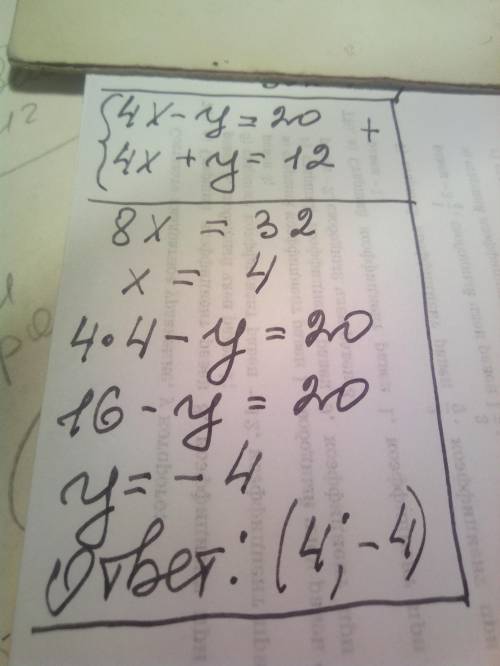 4x - y = 20 +
4x + y = 12
8x = 32
x = 4
4•4 - y = 20
16 - y = 20
y = - 4
Ответ: (4; -4)